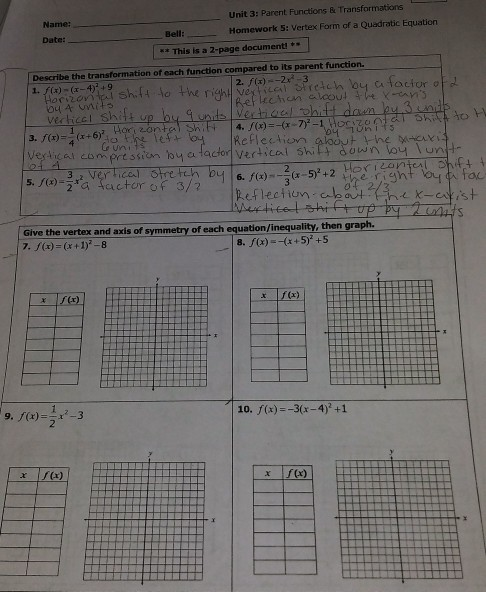 Name:
Unit 3: Parent Functions & Transformations
Date:
Bell:
Homework 5: Vertex Form of a Quadratic Equation
** This is a 2-page document! **
Describe the transformation of each function compared to its parent function.
1. f(x)=(x-4)²+9
Horizontal shift to the right
by 4 units
vertical shift up by 9 units
2. f(x)=-2x²-3
vertical stretch by a factor of 2
Reflection about the x-axis
Vertical shift down by 3 units
3. f(x)=1/4(x+6)²
Horizontal shift
to the left by
6 units
Vertical compression by a factor
of 4
4. f(x)=-(x-7)²-1
Horizontal shift to
by 7 units
Reflection about the
Vertical shift down by 1 unit
5. f(x)=3/2x²
Vertical stretch by
a factor of 3/2
6. f(x)=-2/3(x-5)²+2
Horizontal shift
the right by a fac
of 2/3
Reflection about the x-axist
Vertical shift up by 2 units
Give the vertex and axis of symmetry of each equation/inequality, then graph.
7. f(x)=(x+1)²-8
x f(x)
y
x
8. f(x)=-(x+5)²+5
x f(x)
y
x
9. f(x)=1/2x²-3
x f(x)
y
x
10. f(x)=-3(x-4)²+1
x f(x)
y
x